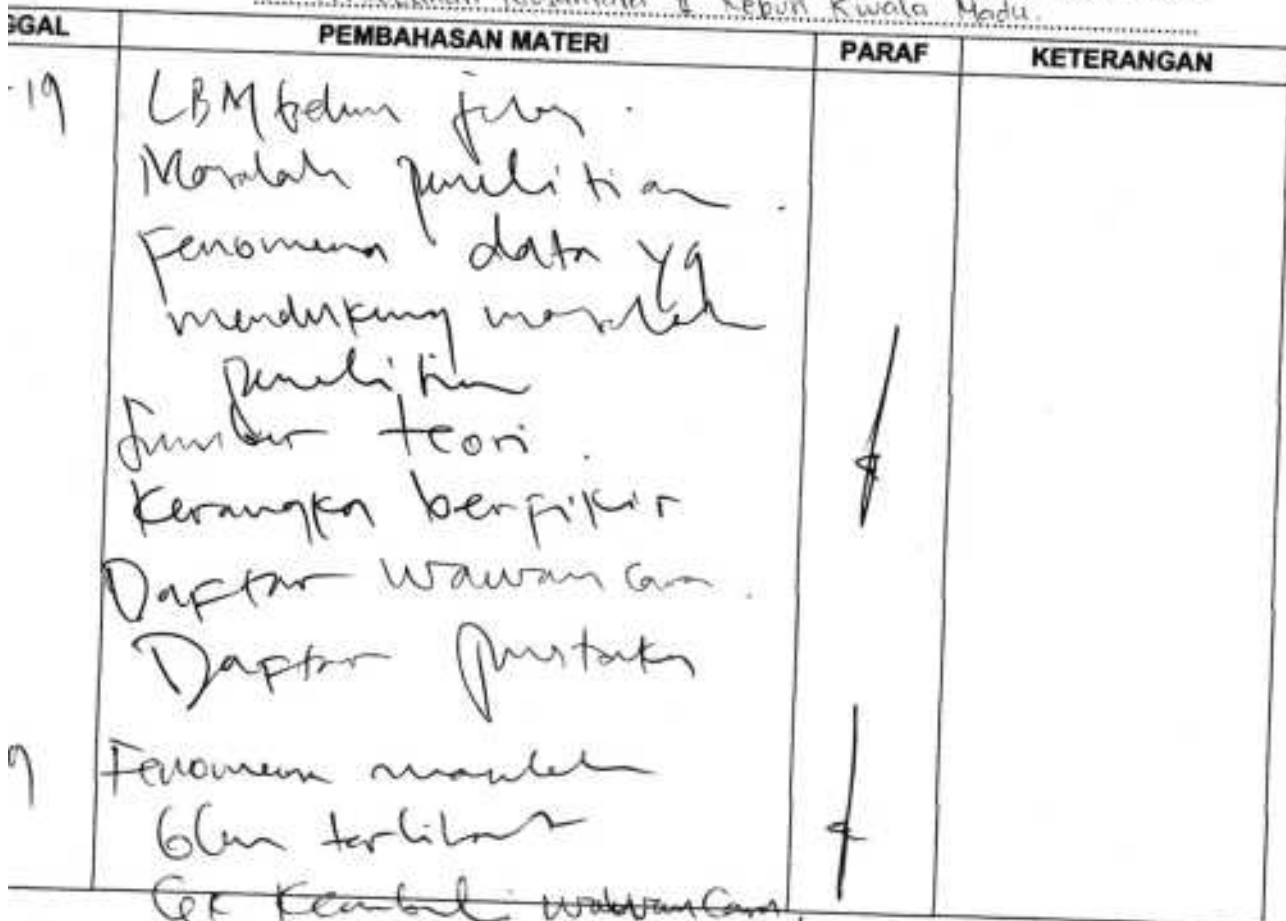 & Kebun Kwala Madu.
GGAL PEMBAHASAN MATERI PARAF KETERANGAN
-19 LBM belum jelas.
Masalah penelitian.
Fenomena data yg
mendukung masalah
penelitian
Sumber teori.
Kerangka berfikir
Daftar wawancara.
Daftar pustaka
9 Fenomena masalah
blm terlihat
Cek kembali wawancara.